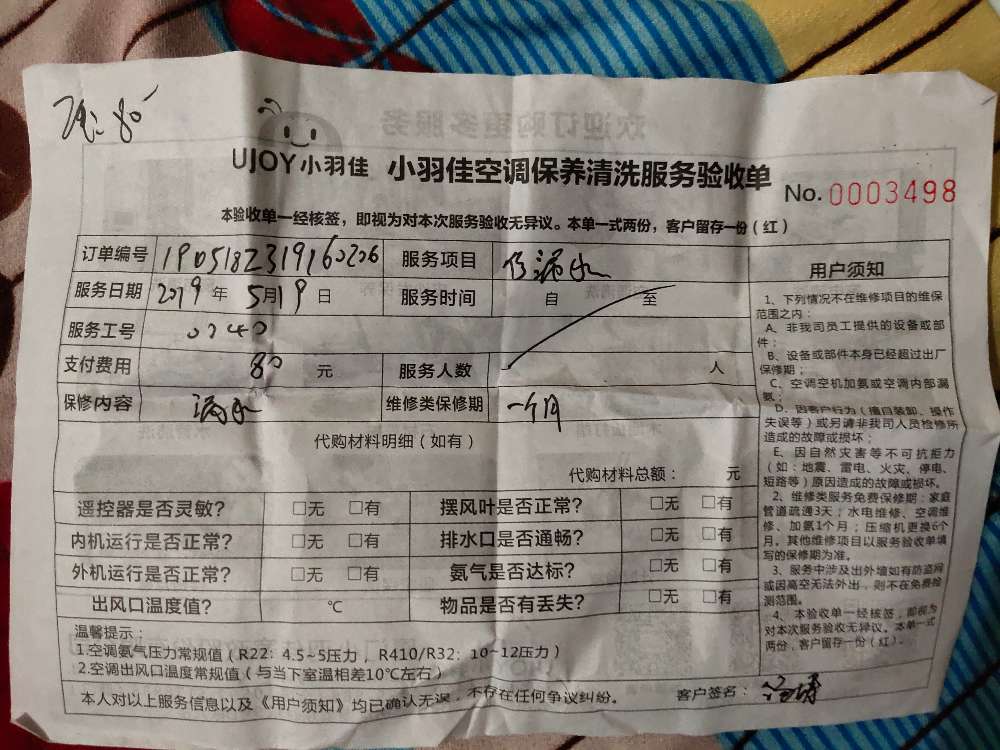 80
UJOY小羽佳 小羽佳空调保养清洗服务验收单
No. 0003498
本验收单一经核签，即视为对本次服务验收无异议。本单一式两份，客户留存一份（红）
订单编号 190518231916 服务项目 漏水
服务日期 2019 年 5月19日 服务时间 自 至
服务工号 0240
支付费用 80 元 服务人数 人
保修内容 漏水 维修类保修期 一个月
代购材料明细（如有）
代购材料总额： 元
遥控器是否灵敏? □无 □有 摆风叶是否正常? □无 □有
内机运行是否正常? □无 □有 排水口是否通畅? □无 □有
外机运行是否正常? □无 □有 氨气是否达标? □无 □有
出风口温度值? ℃ 物品是否有丢失? □无 □有
温馨提示：
1.空调氨气压力常规值（R22：4.5~5压力，R410/R32：10~12压力）
2.空调出风口温度常规值（与当下室温相差10℃左右）
本人对以上服务信息以及《用户须知》均已确认无误，不存在任何争议纠纷。 客户签名：
用户须知
1、下列情况不在维修项目的维保
范围之内：
A、非我司员工提供的设备或部
件；
B、设备或部件本身已经超过出厂
保修期；
C、空调空机加氨或空调内部漏
氨；
D、因客户行为（擅自装卸、操作
失误等）或另请非我司人员检修所
造成的故障或损坏；
E、因自然灾害等不可抗拒力
（如：地震、雷电、火灾、停电、
短路等）原因造成的故障或损坏。
2、维修类服务免费保修期：家庭
管道疏通3天；水电维修、空调维
修、加氨1个月；压缩机更换6个
月，其他维修项目以服务验收单填
写的保修期为准。
3、服务中涉及出外墙如有防盗网
或因高空无法外出，则不在免费检
测范围。
4、本验收单一经核签，即视为
对本次服务验收无异议。本单一式
两份，客户留存一份（红）.